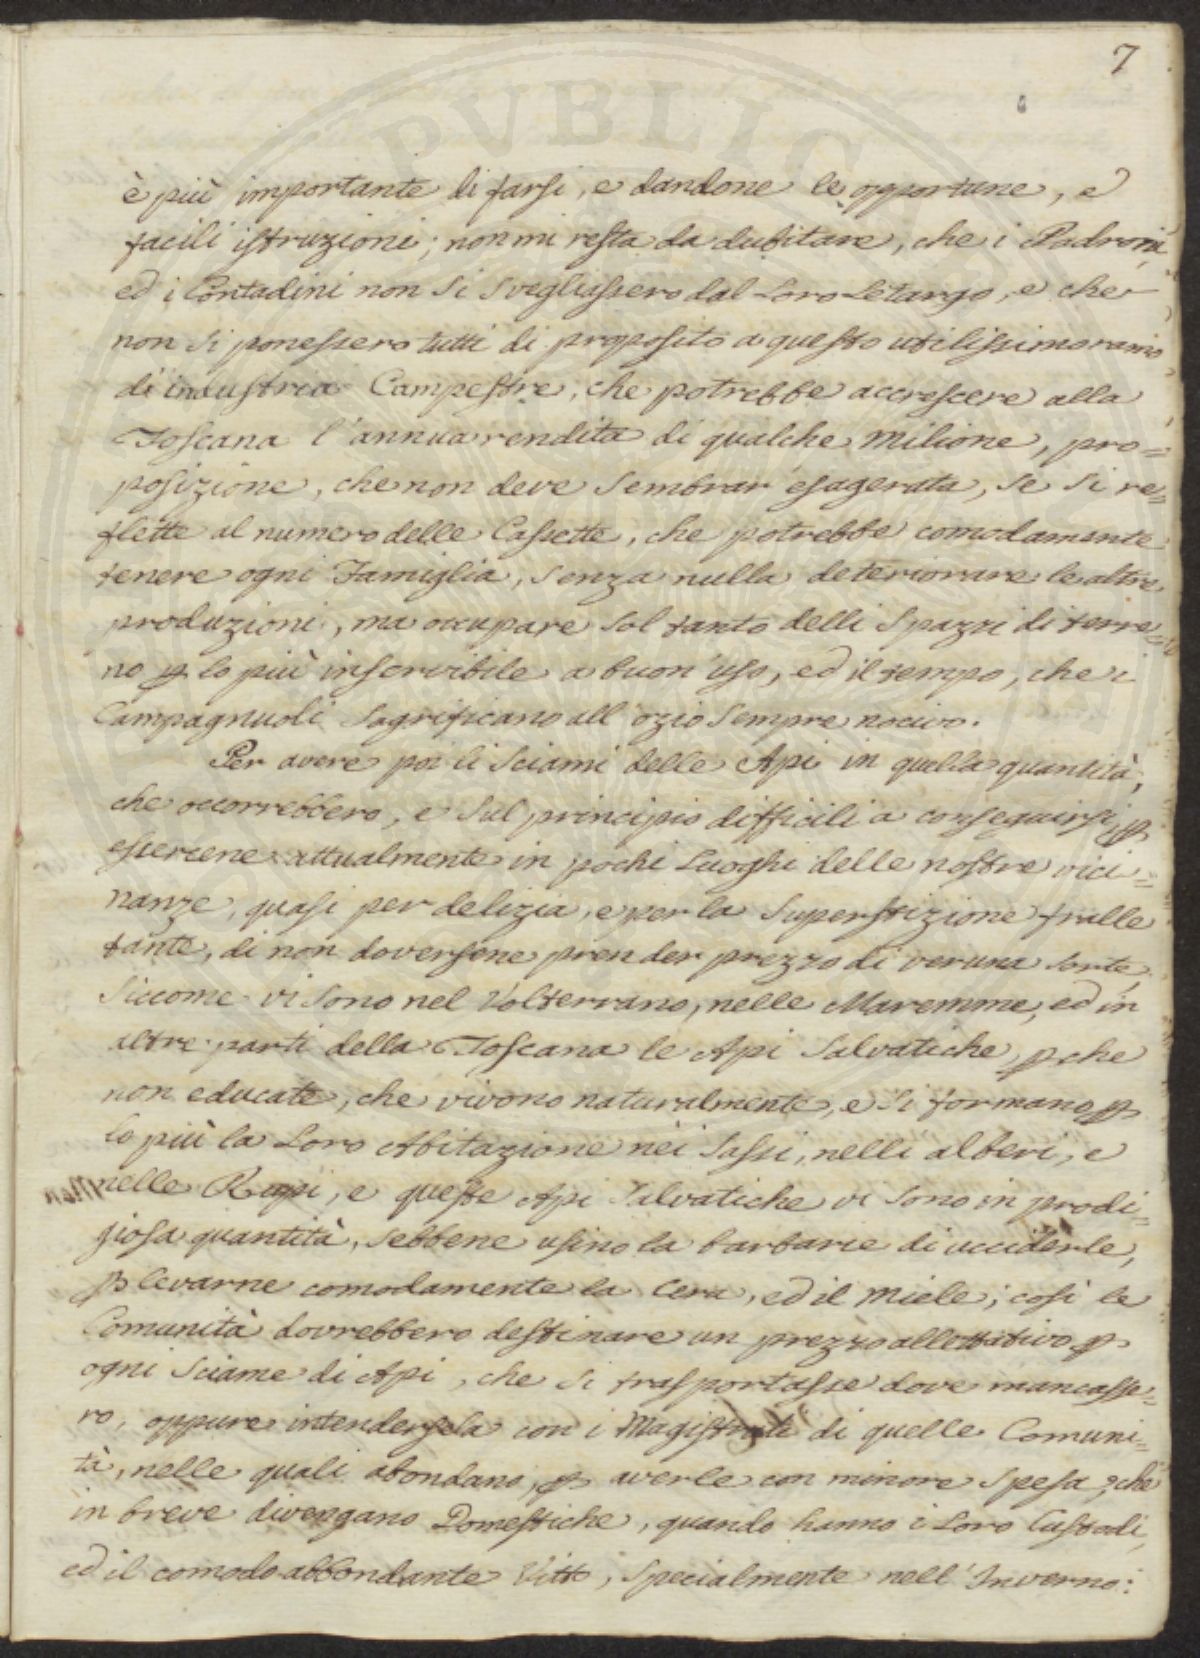 7
è più importante di farsi, e dandone le opportune, e
facili istruzioni; non mi resta da dubitare, che i Padroni,
ed i Contadini non si svegliassero dal Loro Letargo, e che
non si ponessero tutti di proposito a questo utilissimo ramo
di industria Campestre, che potrebbe accrescere alla
Toscana l'annua rendita di qualche milione, pro=
posizione, che non deve sembrar esagerata, se si re=
flette al numero delle Cassette, che potrebbe comodamente
tenere ogni Famiglia, senza nulla deteriorare le altre
produzioni, ma occupare sol tanto delli Spazzi di terre=
no p lo più inservibile a buon'uso, ed il tempo, che i
Campagnuoli sagrificano all'ozio sempre nocivo.
Per avere poi li Sciami delle Api in quella quantità,
che occorrebbero, e sul principio difficili a conseguirsi, p
essercene attualmente in pochi Luoghi delle nostre vici=
nanze, quasi per delizia, e per la Superstizione fralle
tante, di non doversene prender prezzo di veruna sorte,
siccome vi sono nel Volterrano, nelle Maremme, ed in
altre parti della Toscana le Api Salvatiche, p che
non educate, che vivono naturalmente, e si formano p
lo più la Loro Abitazione nei Sassi, nelli alberi, e
nelle Rupi, e queste Api Salvatiche vi sono in prodi=
giosa quantità, sebbene usino la barbarie di ucciderle,
p levarne comodamente la Cera, ed il Miele; così le
Comunità dovrebbero destinare un prezzo allettativo p
ogni Sciame di Api, che si trasportasse dove mancasse=
ro, oppure intendersela con i Magistrati di quelle Comuni=
tà, nelle quali abondano, p averle con minore Spesa, che
in breve divengano Domestiche, quando hanno i Loro Custodi,
ed il comodo abbondante Vitto, specialmente nell'Inverno: